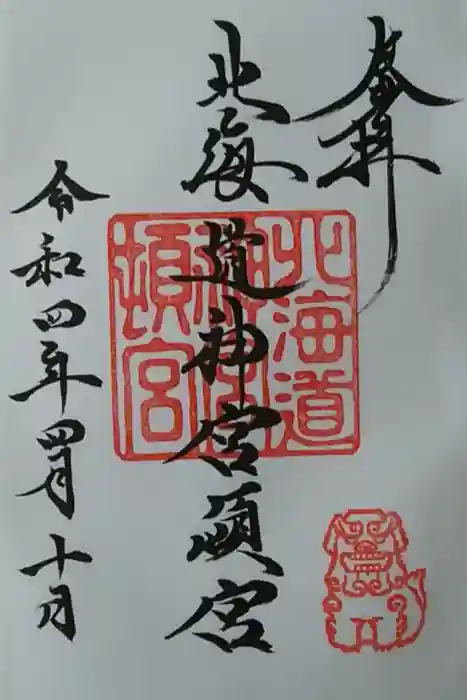 奉拝
北海道神宮頓宮
北海道
神宮
頓宮
令和四年四月十日